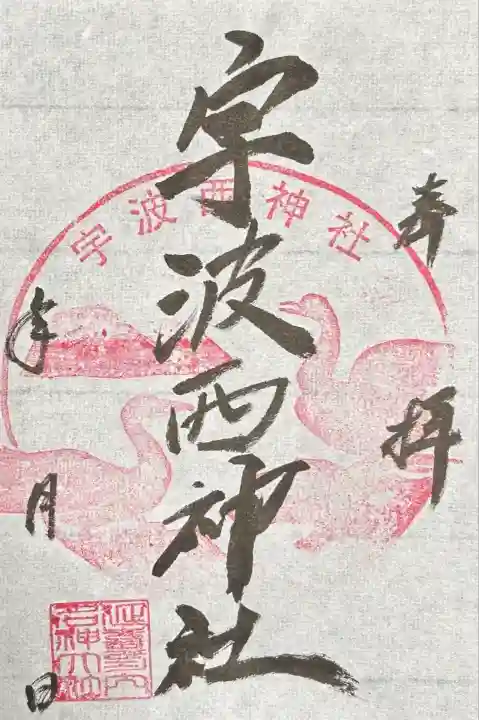 奉拝
宇波西神社
宇波西神社
年月日